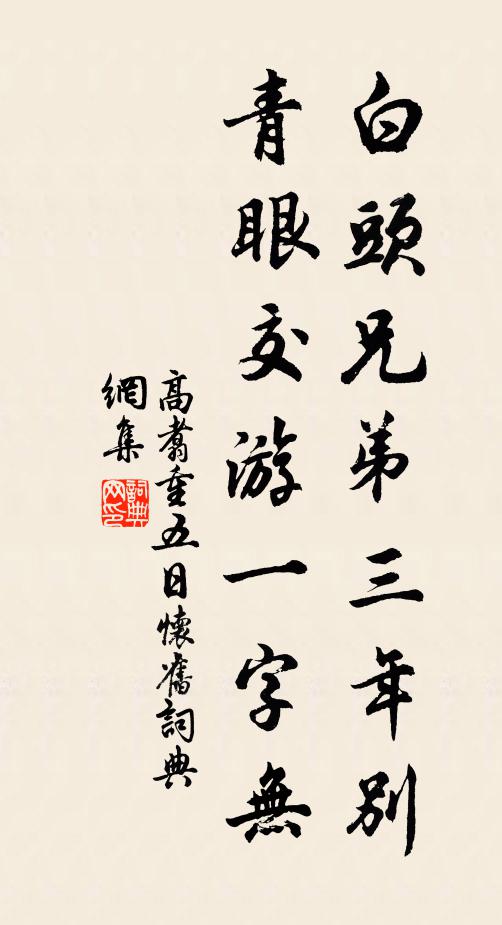 白頭兄弟三年別
青眼交游一字無
高翥重五日懷舊詞典
網集
詞典網印